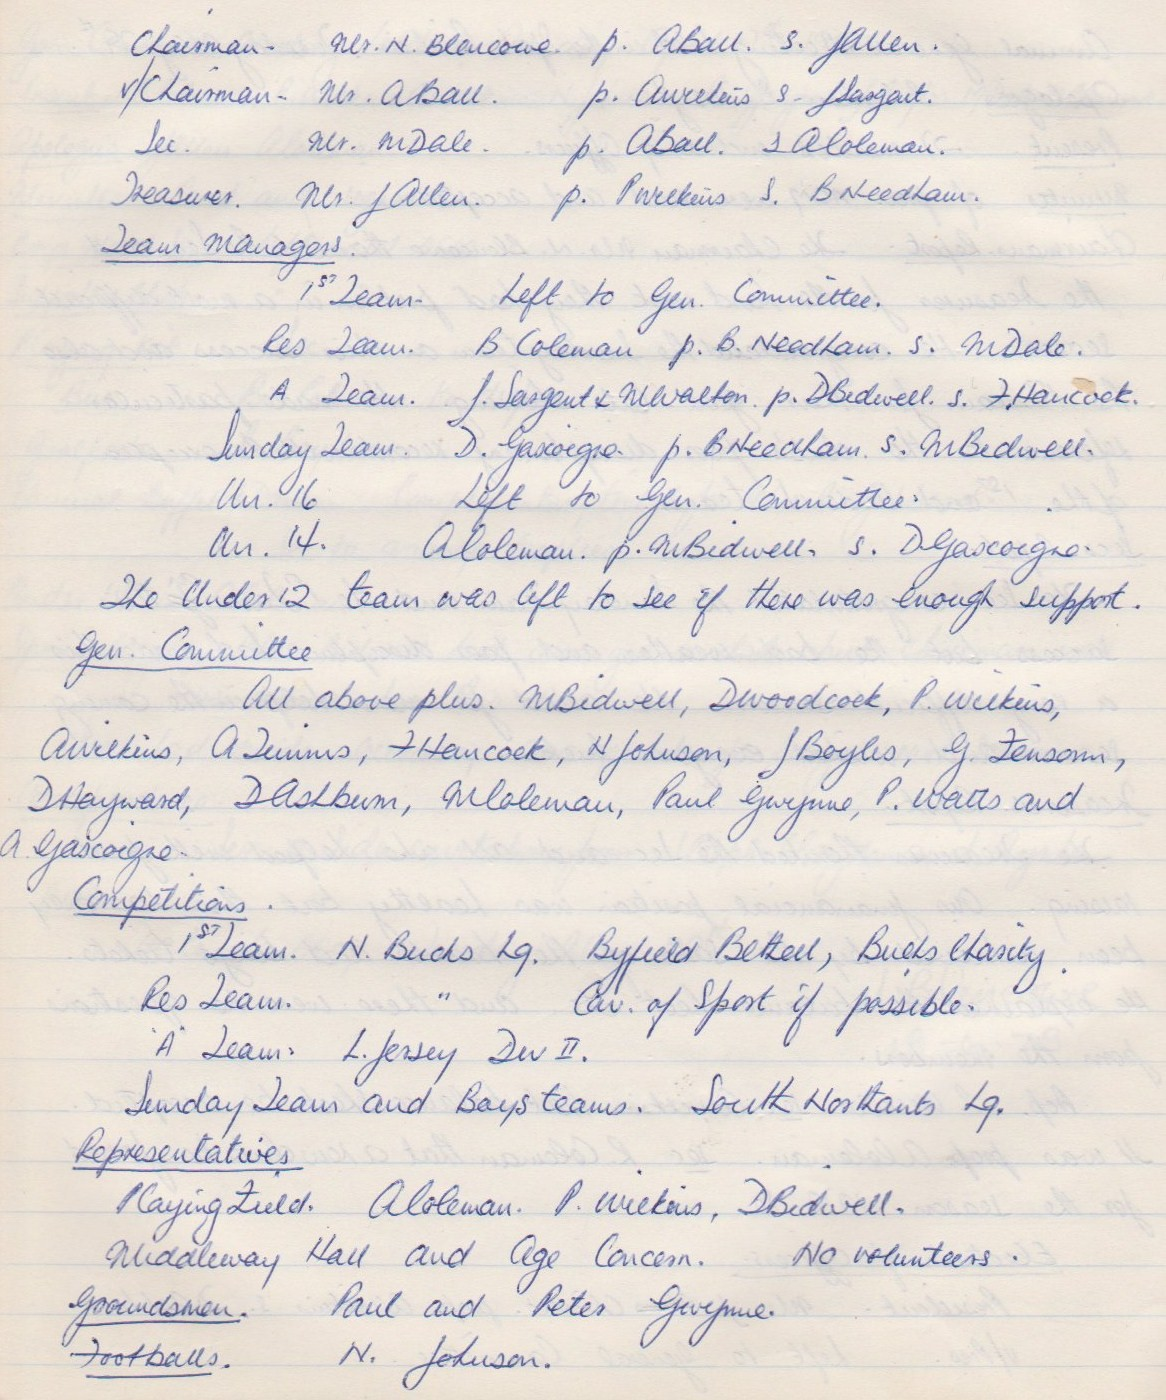 Chairman - Mr. N. Blencowe. p. A Ball. s. J Allen.
V/Chairman - Mr. A Ball. p. A Wilkins s - J Sargent.
Sec. Mr. M Dale. p. A Ball. s A Coleman.
Treasurer. Mr. J Allen. p. P Wilkins s. B Needham.
Team Managers.
1ST Team - Left to Gen. Committee.
Res Team. B Coleman p. B. Needham. s. M Dale.
A Team. J. Sargent & M Walton. p. D Bidwell. s. F. Hancock.
Sunday Team. D. Gascoigne. p. B Needham. s. M Bidwell.
Un. 16 Left to Gen. Committee.
Un. 14. A Coleman. p. M Bidwell. s. D Gascoigne.
The Under 12 team was left to see if there was enough support.
Gen. Committee
All above plus. M Bidwell, D Woodcock, P. Wilkins,
A Wilkins, A Timms, F Hancock, N Johnson, J Boyles, G. Fensom,
D Hayward, D Ashburn, M Coleman, Paul Gwynne, P. Watts and
A Gascoigne.
Competitions.
1ST Team. N. Bucks Lg. Byfield Bethell, Bucks Charity.
Res Team. " Cav. of Sport if possible.
"A" Team. L. Jersey Div II.
Sunday Team and Boys teams. South Northants Lg.
Representatives
Playing Field. A Coleman. P. Wilkins, D Bidwell.
Middleway Hall and Age Concern. No volunteers.
Groundsmen. Paul and Peter Gwynne.
Footballs. N. Johnson.